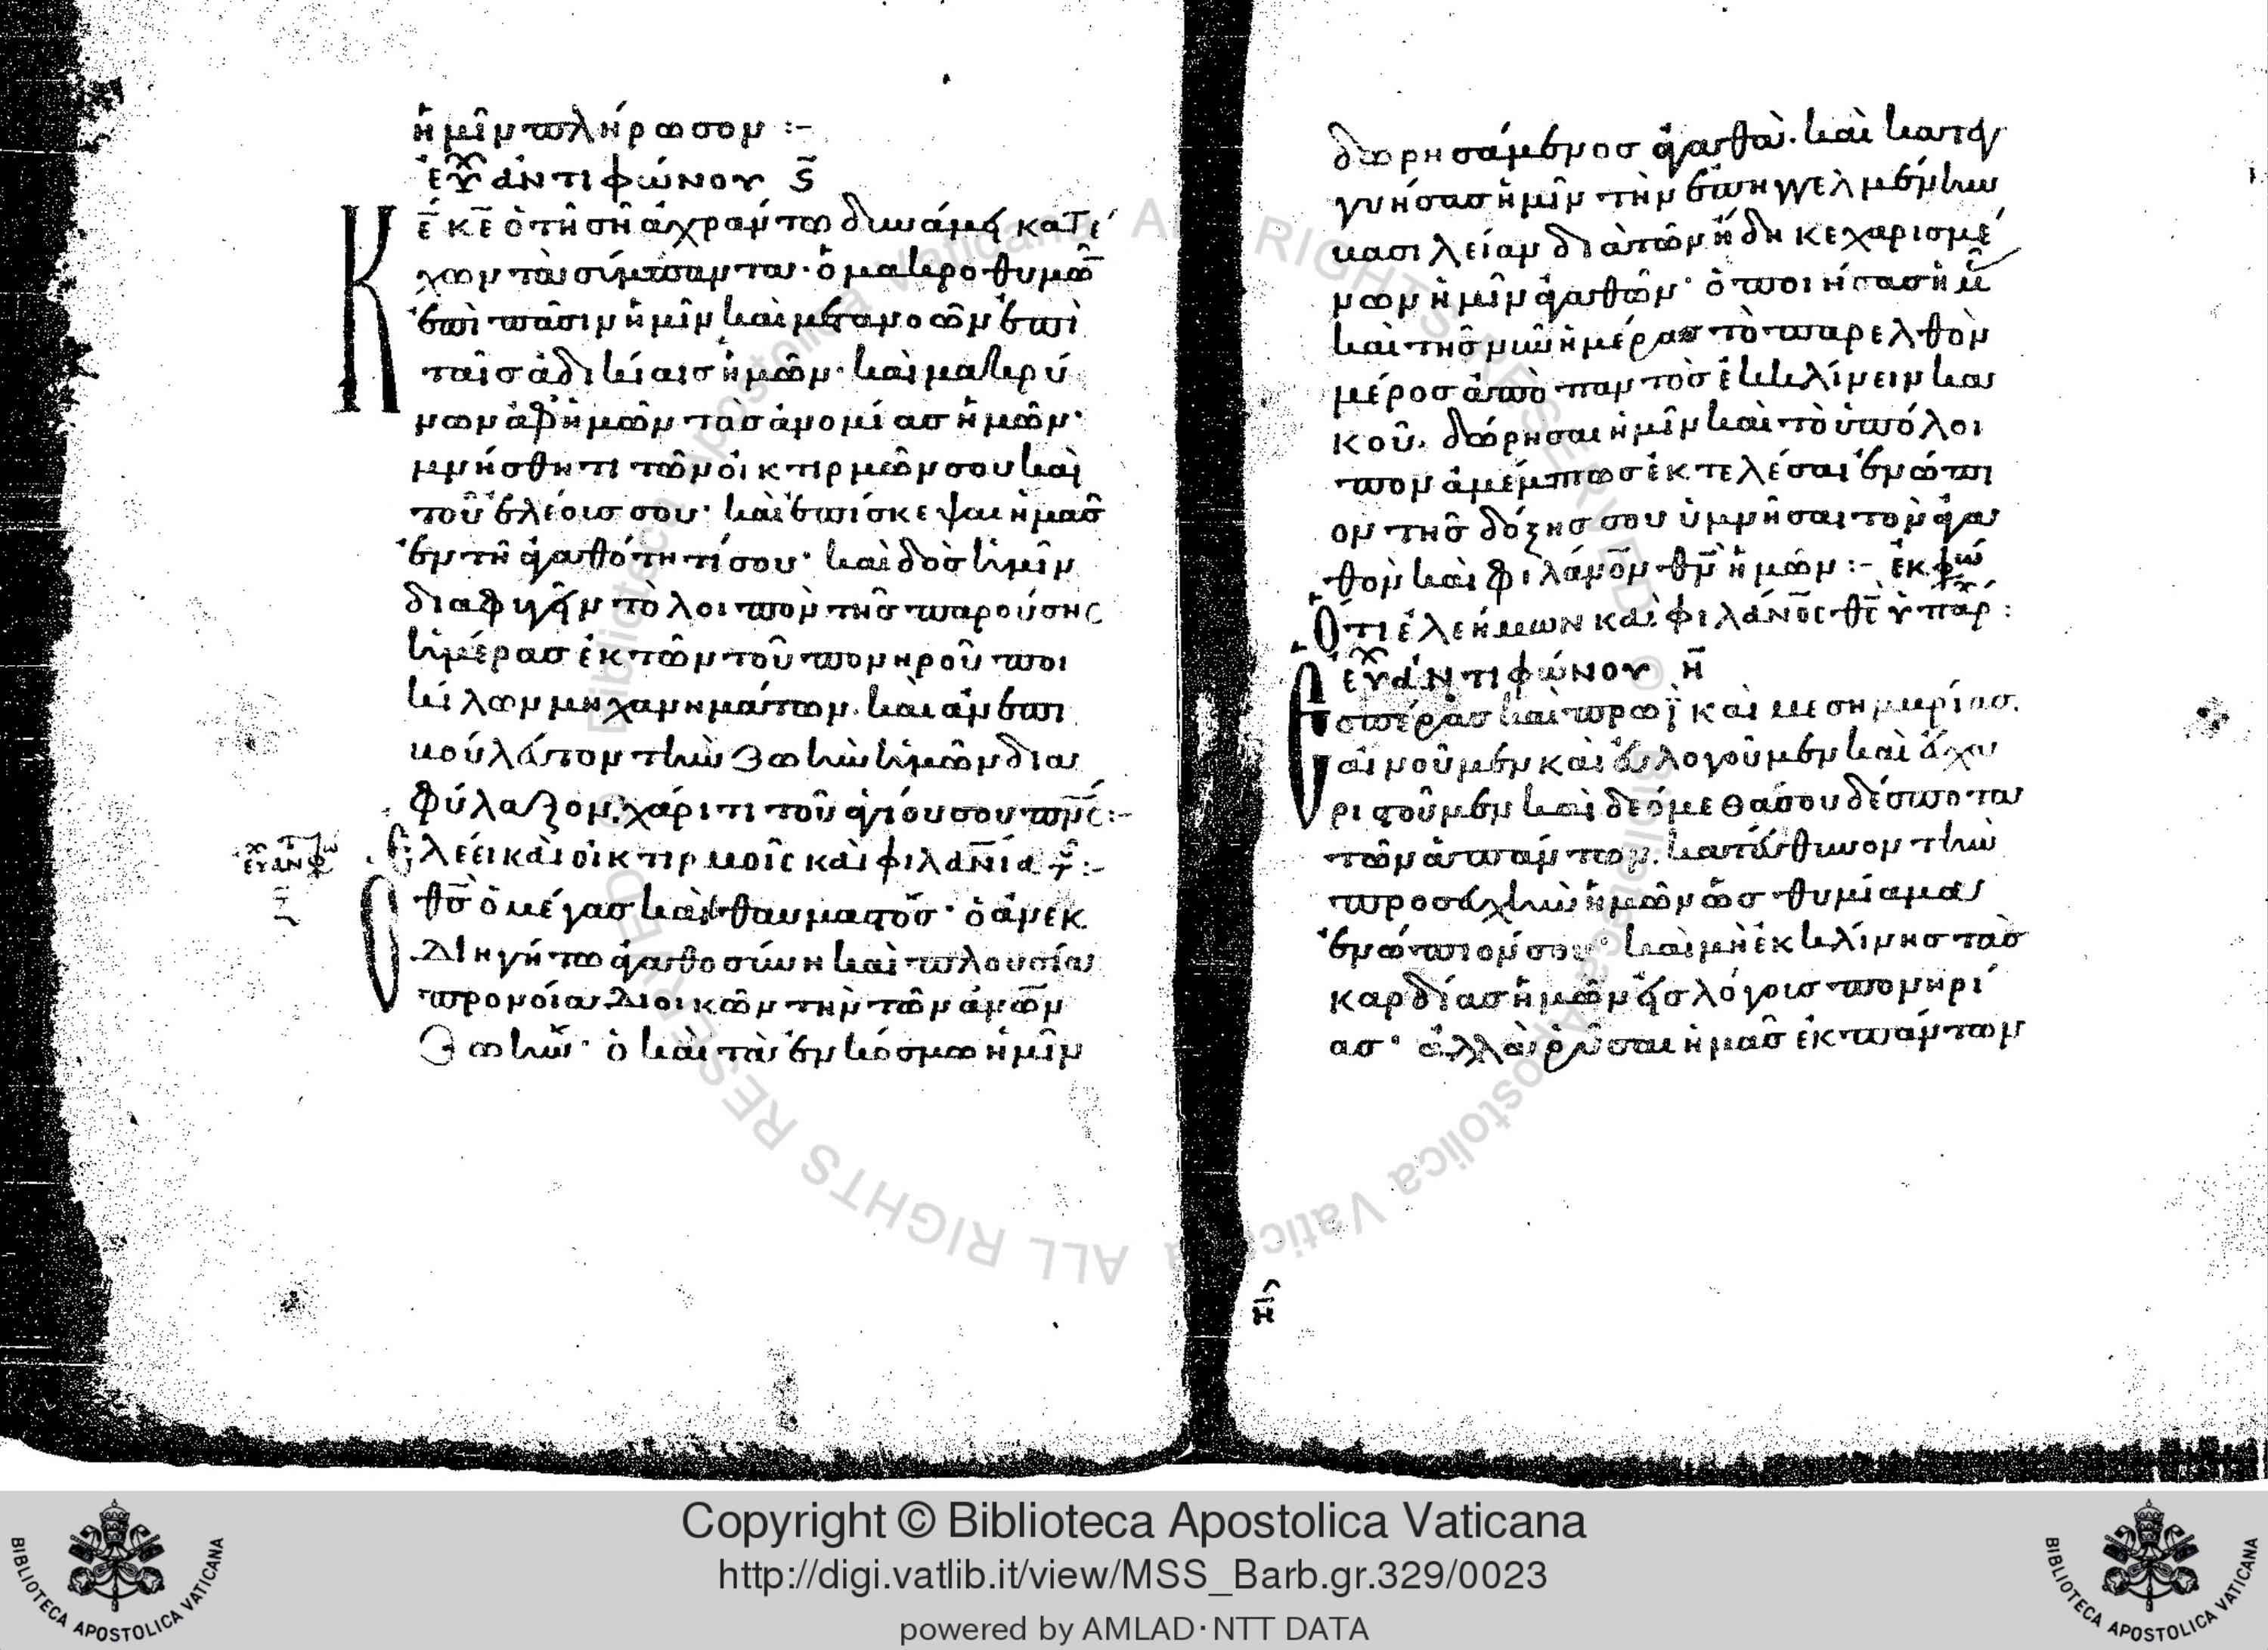 ἡμῖν πλήρωσον :-
εὐχ ἀντιφώνου ς
Κε κε ὁ τῆ σῆ ἀχράντω δυνάμει κατέ
χων τὰ σύμπαντα· ὁ μακροθυμῶ
ἐπὶ πᾶσιν ἡμῖν καὶ μετανοῶν ἐπὶ
ταῖς ἀδικίαις ἡμῶν· καὶ μακρύ
νων ἀφ ἡμῶν τὰς ἀνομίας ἡμῶν·
μνήσθητι τῶν οἰκτιρμῶν σου καὶ
τοῦ ἐλέοις σου· καὶ ἐπίσκεψαι ἡμᾶς
ἐν τῆ ἀγαθότητί σου· καὶ δὸς ἡμῖν
διαφυγεῖν τὸ λοιπὸν τῆς παρούσης
ἡμέρας ἐκ τῶν τοῦ πονηροῦ ποι
κίλων μηχανημάτων. καὶ ἀνεπι
βούλευτον τὴν ζωὴν ἡμῶν δια
φύλαξον. χάριτι τοῦ ἁγίου σου πνς :-
Ἐλέει καὶ οἰκτιρμοῖς καὶ φιλανία τ :-
εὐχ ἀντιφώ
ζ
Ὁ θς ὁ μέγας καὶ θαυμαστός· ὁ ἀνεκ
διηγήτω ἀγαθοσύνη καὶ πλουσία
προνοία διοικῶν τὴν τῶν ἀνων
ζωήν· ὁ καὶ τὰ ἐν κόσμω ἡμῖν
δωρησάμενος ἀγαθά. καὶ κατεγ
γυήσας ἡμῖν τὴν ἐπηγγελμένην
βασιλείαν διὰ τῶν ἤδη κεχαρισμέ
νων ἡμῖν ἀγαθῶν· ὁ ποιήσας ἡμ
καὶ τῆς νῦν ἡμέρας τὸ παρελθὸν
μέρος ἀπὸ παντὸς ἐκκλίνειν κα
κοῦ. δώρησαι ἡμῖν καὶ τὸ ὑπόλοι
πον ἀμέμπτως ἐκτελέσαι ἐνώπι
ον τῆς δόξης σου ὑμνῆσαι τὸν ἀγα
θὸν καὶ φιλάνον θν ἡμῶν :- ἐκφώ
Ὅτι ἐλεήμων καὶ φιλάνος θς ὑπάρ :
εὐχ ἀντιφώνου η
Ἑσπέρας καὶ πρωῒ καὶ μεσημβρίας.
αἰνοῦμεν καὶ εὐλογοῦμεν καὶ εὐχα
ριστοῦμεν καὶ δεόμεθά σου δέσποτα
τῶν ἁπάντων. κατεύθυνον τὴν
προσευχὴν ἡμῶν ὡς θυμίαμα
ἐνώπιόν σου· καὶ μὴ ἐκκλίνης τὰς
καρδίας ἡμῶν εἰς λόγοις πονηρί
ας· ἀλλὰ ῥῦσαι ἡμᾶς ἐκ πάντων
η
Copyright © Biblioteca Apostolica Vaticana
http://digi.vatlib.it/view/MSS_Barb.gr.329/0023
powered by AMLAD·NTT DATA